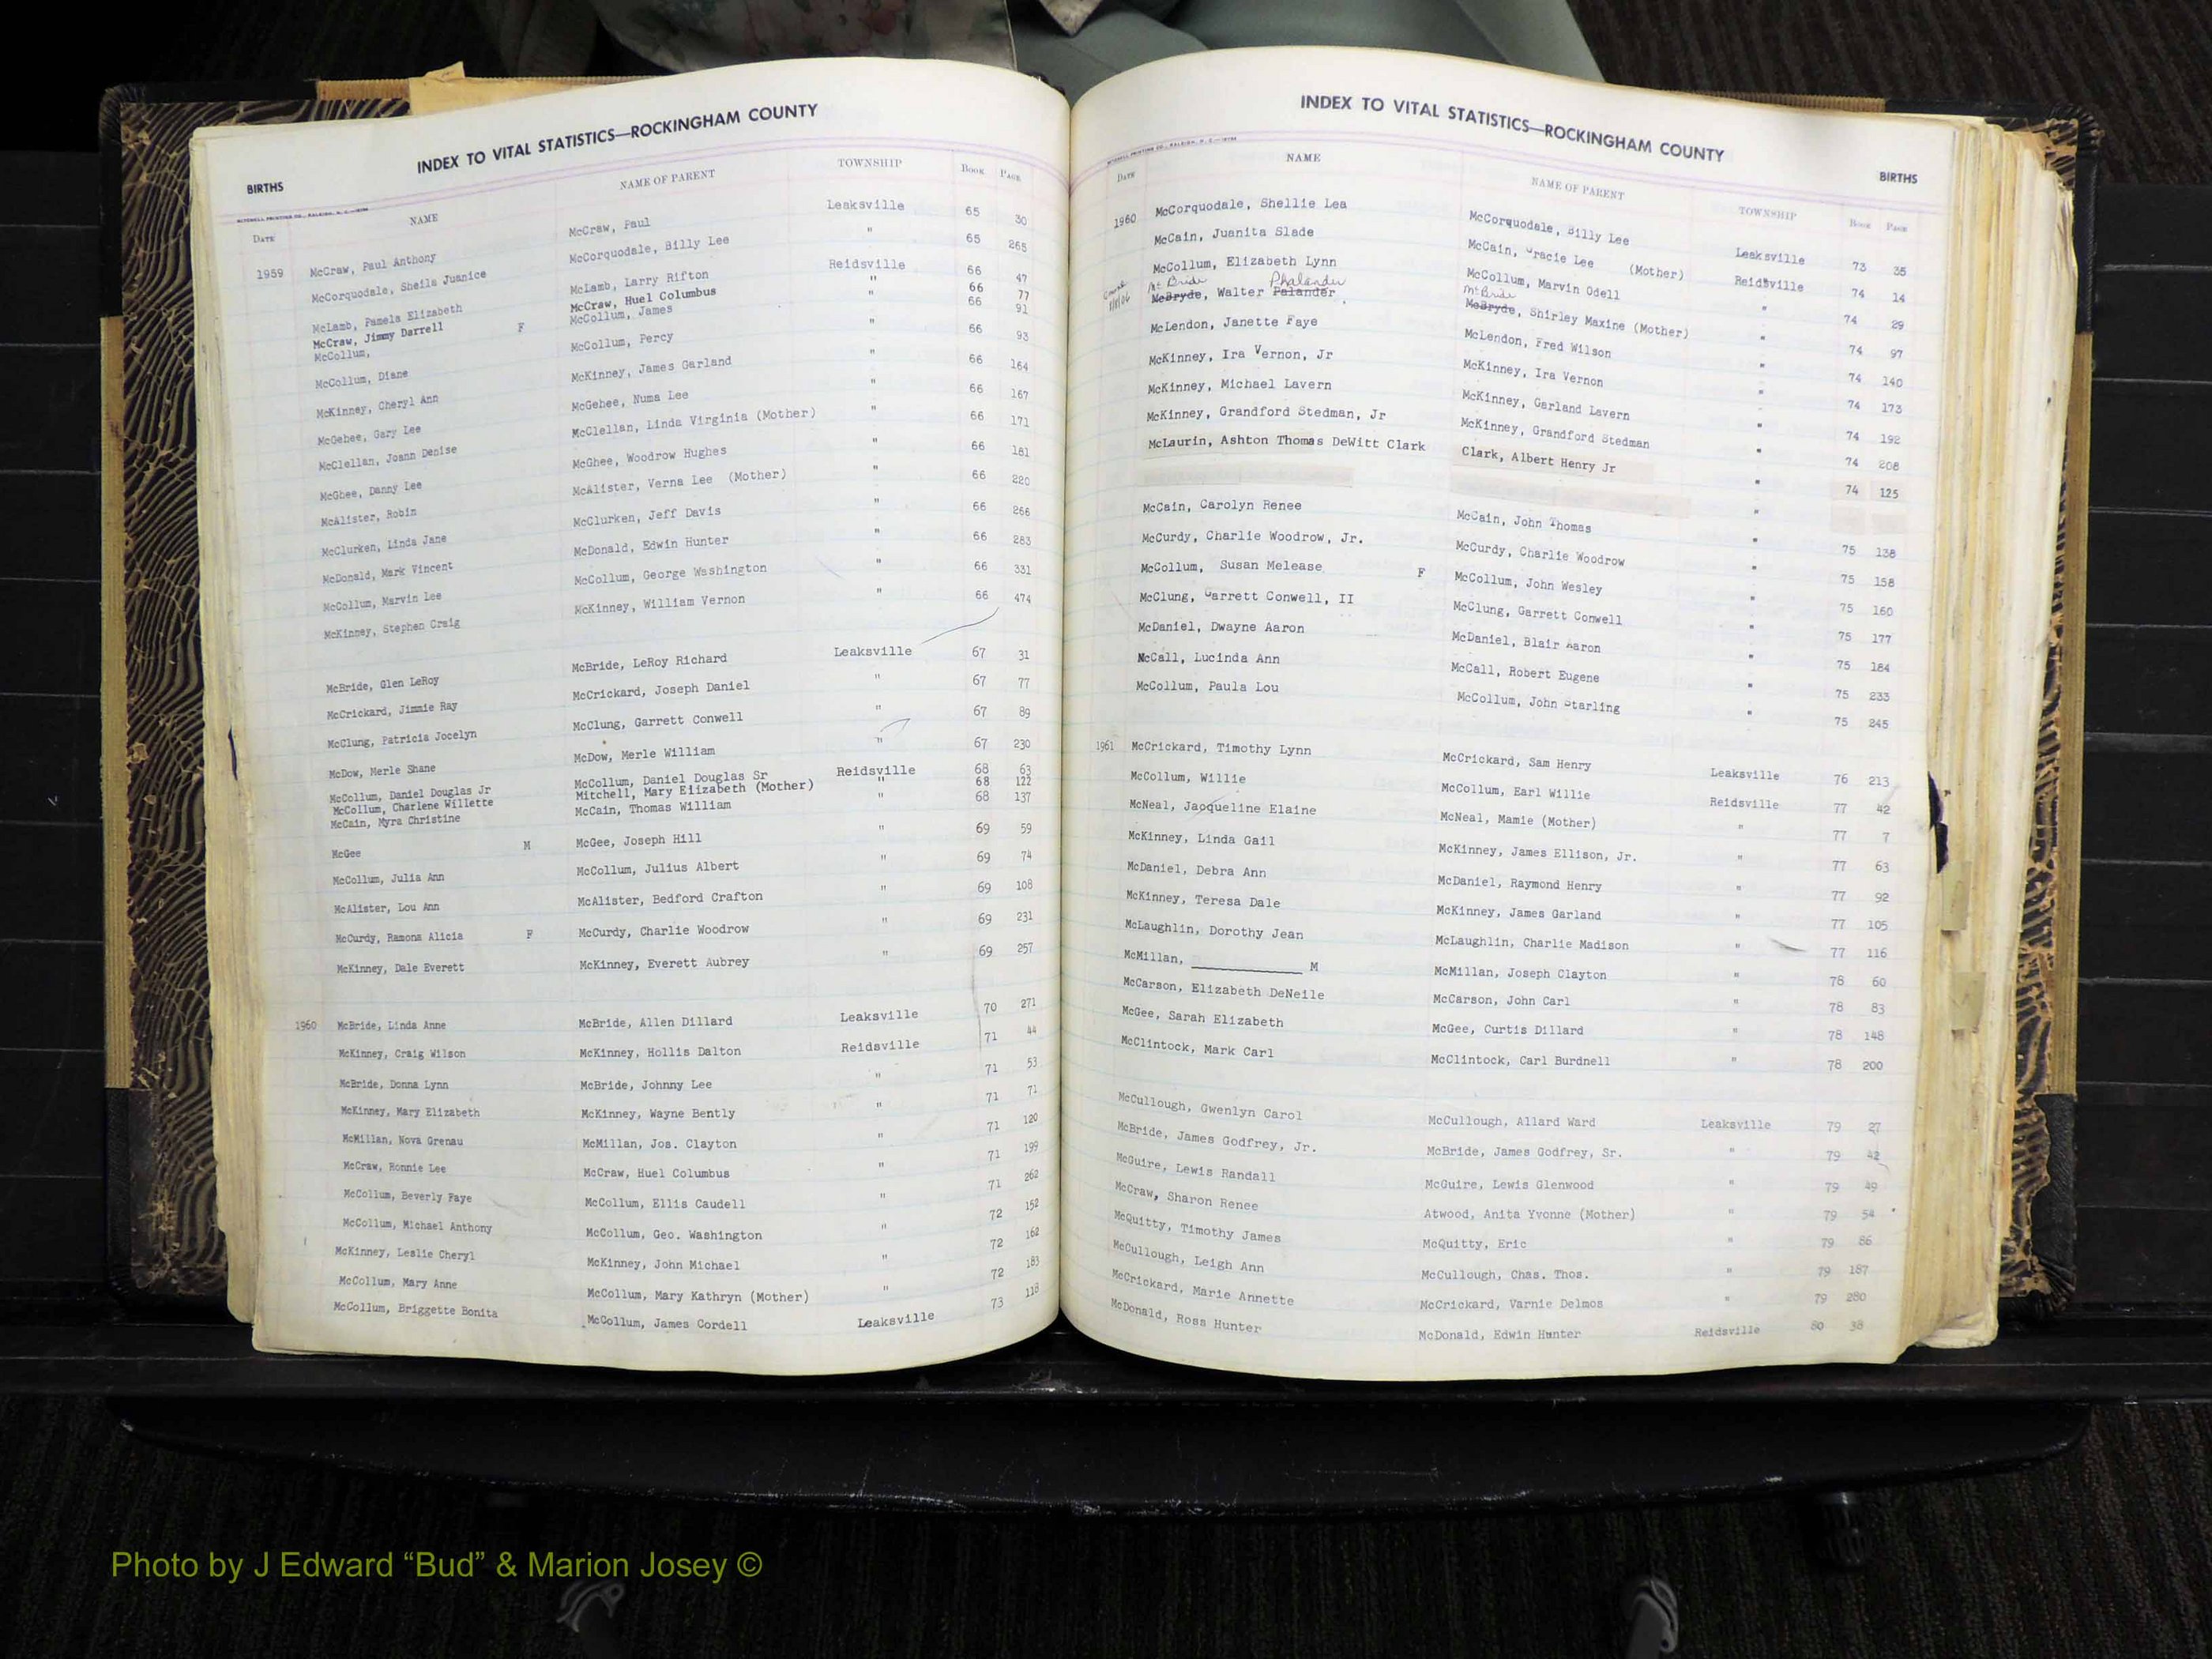 INDEX TO VITAL STATISTICS—ROCKINGHAM COUNTY
BIRTHS
MITCHELL PRINTING CO., RALEIGH, N. C.
DATE NAME NAME OF PARENT TOWNSHIP BOOK PAGE
1959 McCraw, Paul Anthony McCraw, Paul Leaksville 65 30
McCorquodale, Sheila Juanice McCorquodale, Billy Lee " 65 265
McLamb, Pamela Elizabeth McLamb, Larry Rifton Reidsville 66 47
McCraw, Jimmy Darrell McCraw, Huel Columbus " 66 77
McCollum, F McCollum, James " 66 91
McCollum, Diane McCollum, Percy " 66 93
McKinney, Cheryl Ann McKinney, James Garland " 66 164
McGehee, Gary Lee McGehee, Numa Lee " 66 167
McClellan, Joann Denise McClellan, Linda Virginia (Mother) " 66 171
McGhee, Danny Lee McGhee, Woodrow Hughes " 66 181
McAlister, Robin McAlister, Verna Lee (Mother) " 66 220
McClurken, Linda Jane McClurken, Jeff Davis " 66 266
McDonald, Mark Vincent McDonald, Edwin Hunter " 66 283
McCollum, Marvin Lee McCollum, George Washington " 66 331
McKinney, Stephen Craig McKinney, William Vernon " 66 474
McBride, Glen LeRoy McBride, LeRoy Richard Leaksville 67 31
McCrickard, Jimmie Ray McCrickard, Joseph Daniel " 67 77
McClung, Patricia Jocelyn McClung, Garrett Conwell " 67 89
McDow, Merle Shane McDow, Merle William " 67 230
McCollum, Daniel Douglas Jr McCollum, Daniel Douglas Sr Reidsville 68 63
McCollum, Charlene Willette Mitchell, Mary Elizabeth (Mother) " 68 122
McCain, Myra Christine McCain, Thomas William " 68 137
McGee M McGee, Joseph Hill " 69 59
McCollum, Julia Ann McCollum, Julius Albert " 69 74
McAlister, Lou Ann McAlister, Bedford Crafton " 69 108
McCurdy, Ramona Alicia F McCurdy, Charlie Woodrow " 69 231
McKinney, Dale Everett McKinney, Everett Aubrey " 69 257
1960 McBride, Linda Anne McBride, Allen Dillard Leaksville 70 271
McKinney, Craig Wilson McKinney, Hollis Dalton Reidsville 71 44
McBride, Donna Lynn McBride, Johnny Lee " 71 53
McKinney, Mary Elizabeth McKinney, Wayne Bently " 71 71
McMillan, Nova Grenau McMillan, Jos. Clayton " 71 120
McCraw, Ronnie Lee McCraw, Huel Columbus " 71 199
McCollum, Beverly Faye McCollum, Ellis Caudell " 71 262
McCollum, Michael Anthony McCollum, Geo. Washington " 72 152
McKinney, Leslie Cheryl McKinney, John Michael " 72 162
McCollum, Mary Anne McCollum, Mary Kathryn (Mother) " 72 183
McCollum, Briggette Bonita McCollum, James Cordell Leaksville 73 118
INDEX TO VITAL STATISTICS—ROCKINGHAM COUNTY
BIRTHS
MITCHELL PRINTING CO., RALEIGH, N. C.
DATE NAME NAME OF PARENT TOWNSHIP BOOK PAGE
1960 McCorquodale, Shellie Lea McCorquodale, Billy Lee Leaksville 73 35
McCain, Juanita Slade McCain, Gracie Lee (Mother) Reidsville 74 14
McCollum, Elizabeth Lynn McCollum, Marvin Odell " 74 29
McBride Phalander McBride
McBryde, Walter Palander McBryde, Shirley Maxine (Mother) " 74 97
McLendon, Janette Faye McLendon, Fred Wilson " 74 140
McKinney, Ira Vernon, Jr McKinney, Ira Vernon " 74 173
McKinney, Michael Lavern McKinney, Garland Lavern " 74 192
McKinney, Grandford Stedman, Jr McKinney, Grandford Stedman " 74 208
McLaurin, Ashton Thomas DeWitt Clark Clark, Albert Henry Jr " 74 125
"
McCain, Carolyn Renee McCain, John Thomas " 75 138
McCurdy, Charlie Woodrow, Jr. McCurdy, Charlie Woodrow " 75 158
McCollum, Susan Melease F McCollum, John Wesley " 75 160
McClung, Garrett Conwell, II McClung, Garrett Conwell " 75 177
McDaniel, Dwayne Aaron McDaniel, Blair Aaron " 75 184
McCall, Lucinda Ann McCall, Robert Eugene " 75 233
McCollum, Paula Lou McCollum, John Starling " 75 245
1961 McCrickard, Timothy Lynn McCrickard, Sam Henry Leaksville 76 213
McCollum, Willie McCollum, Earl Willie Reidsville 77 42
McNeal, Jacqueline Elaine McNeal, Mamie (Mother) " 77 7
McKinney, Linda Gail McKinney, James Ellison, Jr. " 77 63
McDaniel, Debra Ann McDaniel, Raymond Henry " 77 92
McKinney, Teresa Dale McKinney, James Garland " 77 105
McLaughlin, Dorothy Jean McLaughlin, Charlie Madison " 77 116
McMillan, M McMillan, Joseph Clayton " 78 60
McCarson, Elizabeth DeNeile McCarson, John Carl " 78 83
McGee, Sarah Elizabeth McGee, Curtis Dillard " 78 148
McClintock, Mark Carl McClintock, Carl Burdnell " 78 200
McCullough, Gwenlyn Carol McCullough, Allard Ward Leaksville 79 27
McBride, James Godfrey, Jr. McBride, James Godfrey, Sr. " 79 42
McGuire, Lewis Randall McGuire, Lewis Glenwood " 79 49
McCraw, Sharon Renee Atwood, Anita Yvonne (Mother) " 79 54
McQuitty, Timothy James McQuitty, Eric " 79 86
McCullough, Leigh Ann McCullough, Chas. Thos. " 79 187
McCrickard, Marie Annette McCrickard, Varnie Delmos " 79 280
McDonald, Ross Hunter McDonald, Edwin Hunter Reidsville 80 38
Photo by J Edward “Bud” & Marion Josey ©